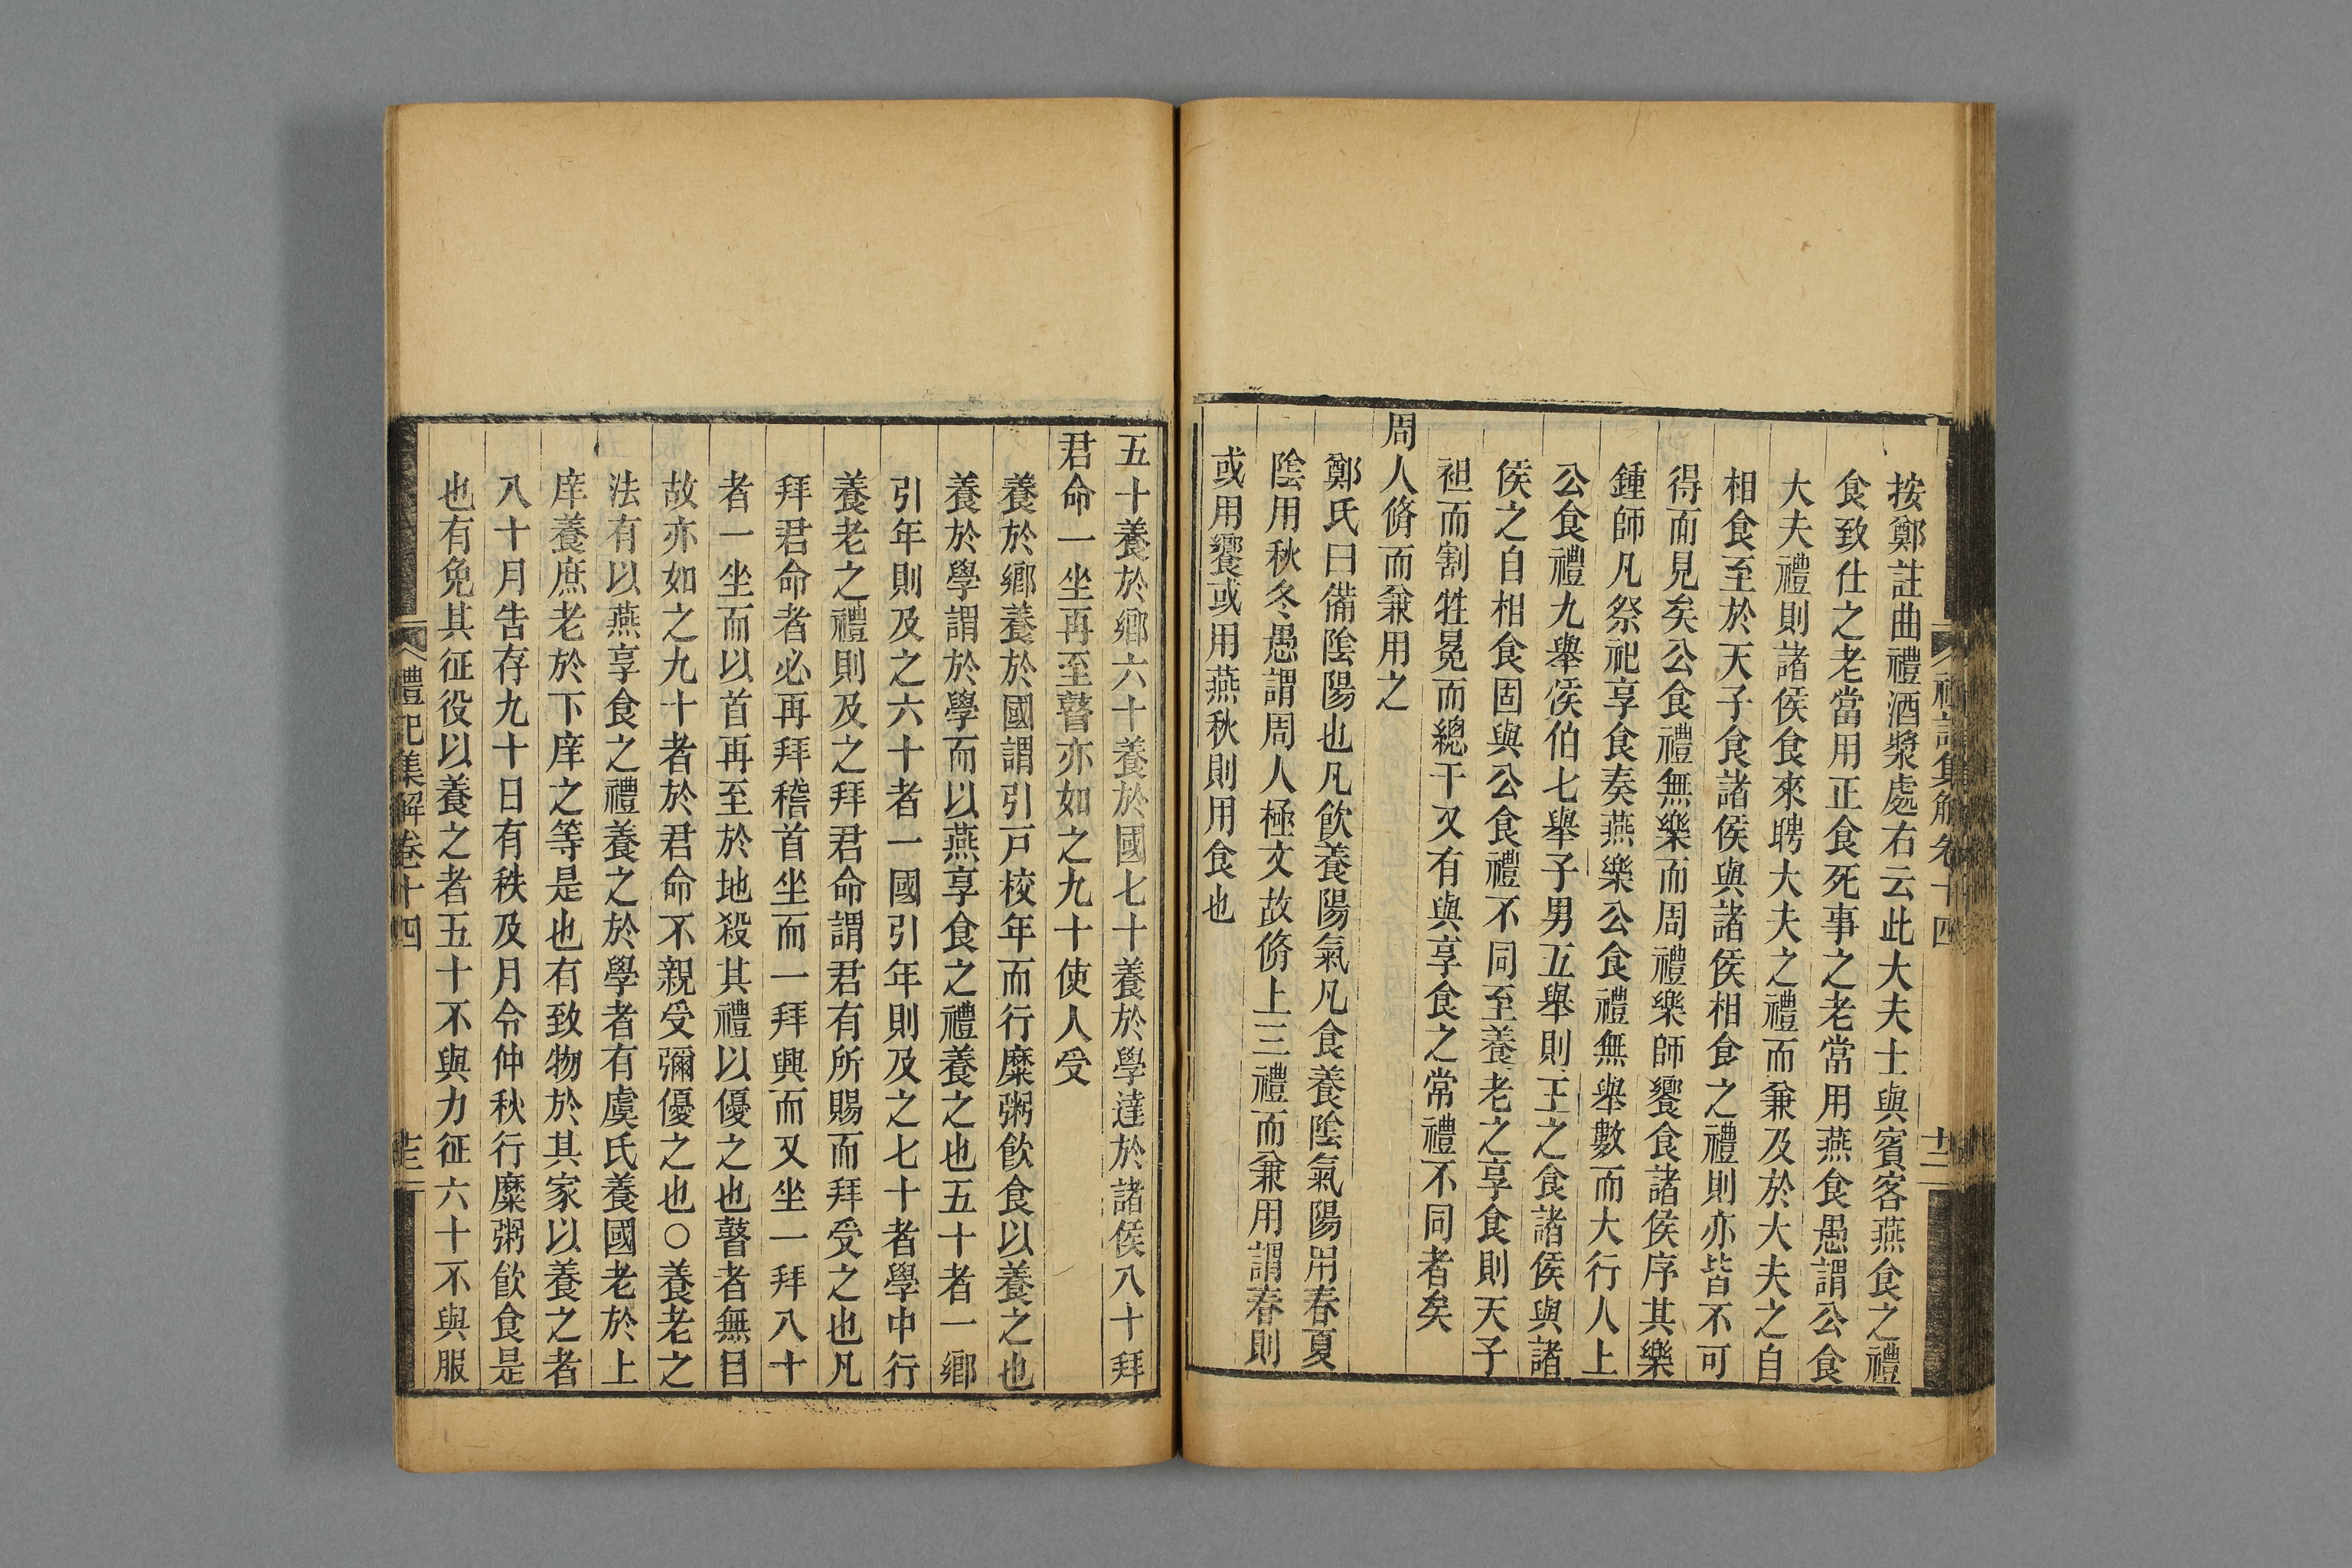 禮記集解卷十四
十二
按鄭註曲禮酒漿處右云此大夫士與賓客燕食之禮
食致仕之老當用正食死事之老當用燕食愚謂公食
大夫禮則諸侯食來聘大夫之禮而兼及於大夫之自
相食至於天子食諸侯與諸侯相食之禮則亦皆不可
得而見矣公食禮無樂而周禮樂師饗食諸侯序其樂
鍾師凡祭祀享食奏燕樂公食禮無舉數而大行人上
公食禮九舉侯伯七舉子男五舉則王之食諸侯與諸
侯之自相食固與公食禮不同至養老之享食則天子
袒而割牲冕而總干又有與享食之常禮不同者矣
周人脩而兼用之
鄭氏曰備陰陽也凡飲養陽氣凡食養陰氣陽用春夏
陰用秋冬愚謂周人極文故脩上三禮而兼用謂春則
或用饗或用燕秋則用食也
五十養於鄉六十養於國七十養於學達於諸侯八十拜
君命一坐再至瞽亦如之九十使人受
養於鄉養於國謂引戶校年而行糜粥飲食以養之也
養於學謂於學而以燕享食之禮養之也五十者一鄉
引年則及之六十者一國引年則及之七十者學中行
養老之禮則及之拜君命謂君有所賜而拜受之也凡
拜君命者必再拜稽首坐而一拜興而又坐一拜八十
者一坐而以首再至於地殺其禮以優之也瞽者無目
故亦如之九十者於君命不親受彌優之也○養老之
法有以燕享食之禮養之於學者有虞氏養國老於上
庠養庶老於下庠之等是也有致物於其家以養之者
八十月告存九十日有秩及月令仲秋行糜粥飲食是
也有免其征役以養之者五十不與力征六十不與服
禮記集解卷十四
十三